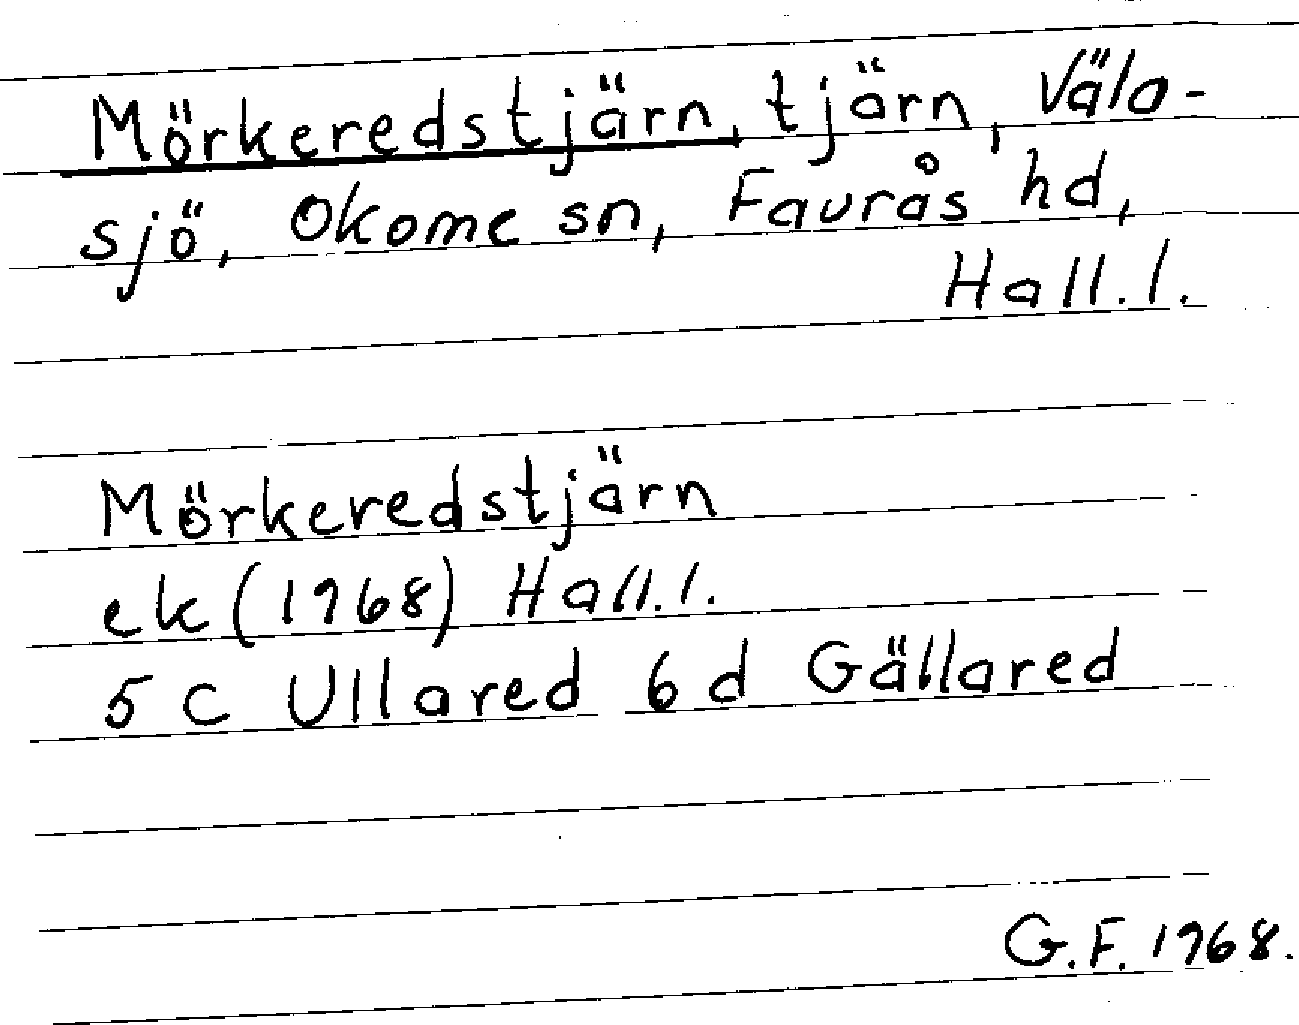 Mörkeredstjärn, tjärn, Väla-
sjö, Okome sn, Faurås hd,
Hall.l.
Mörkeredstjärn
ek (1968) Hall.l.
5 C Ullared 6 d Gällared
G.F. 1968.